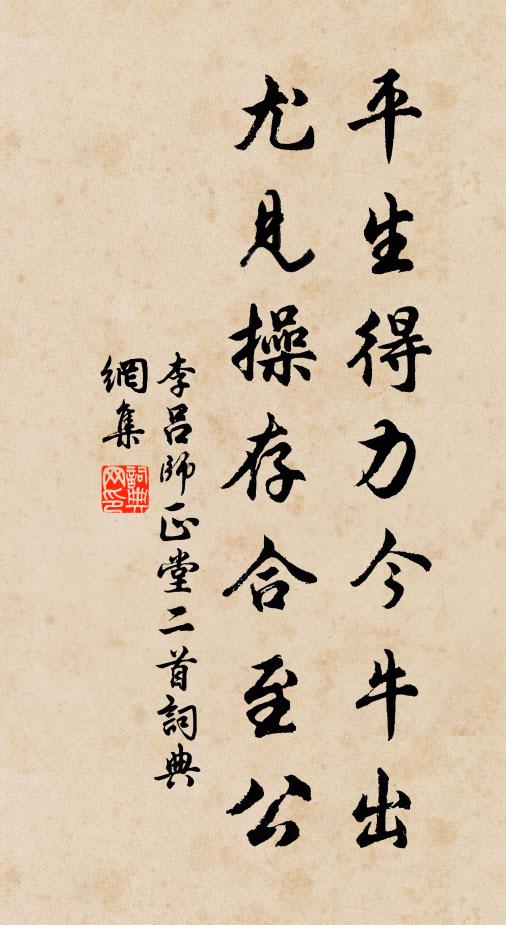 平生得力今牛出
尤見操存合至公
李呂師正堂二首詞典
網集
詞典網印